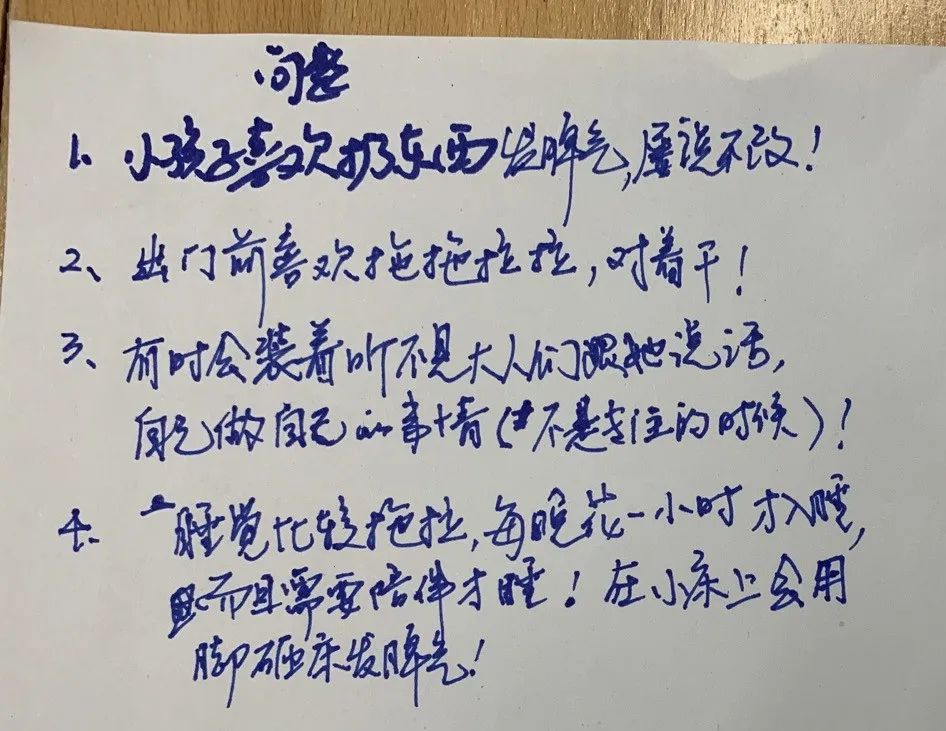 问题
1. 小孩子喜欢扔东西发脾气,屡说不改!
2、出门前喜欢拖拖拉拉,对着干!
3、有时会装着听不见大人们跟她说话,
自己做自己的事情(不是专注的时候)!
4. 睡觉比较拖拉,每晚花一小时才入睡,
而且需要陪伴才睡!在小床上会用
脚砸床发脾气!